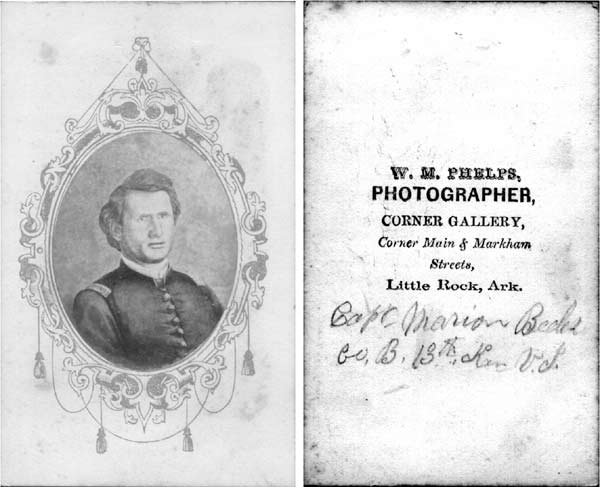 W. M. PHELPS,
PHOTOGRAPHER,
CORNER GALLERY,
Corner Main & Markham
Streets,
Little Rock, Ark.
Capt. Marion
Co, B, 13th, Kan V.I.